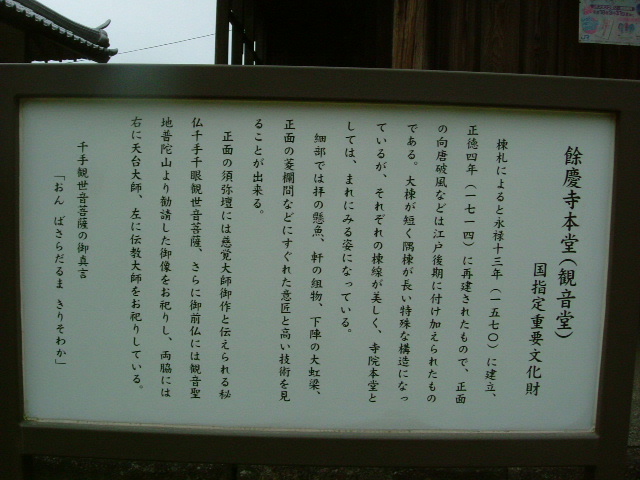 餘慶寺本堂(観音堂)
国指定重要文化財
棟札によると永禄十三年(一五七〇)に建立、
正徳四年(一七一四)に再建されたもので、正面
の向唐破風などは江戸後期に付け加えられたもの
である。大棟が短く隅棟が長い特殊な構造になっ
ているが、それぞれの棟線が美しく、寺院本堂と
しては、まれにみる姿になっている。
細部では拝の懸魚、軒の組物、下陣の大虹梁、
正面の菱欄間などにすぐれた意匠と高い技術を見
ることが出来る。
正面の須弥壇には慈覚大師御作と伝えられる秘
仏千手千眼観世音菩薩、さらに御前仏には観音聖
地普陀山より勧請した御像をお祀りし、両脇には
右に天台大師、左に伝教大師をお祀りしている。
千手観世音菩薩の御真言
「おん ばさらだるま きりそわか」